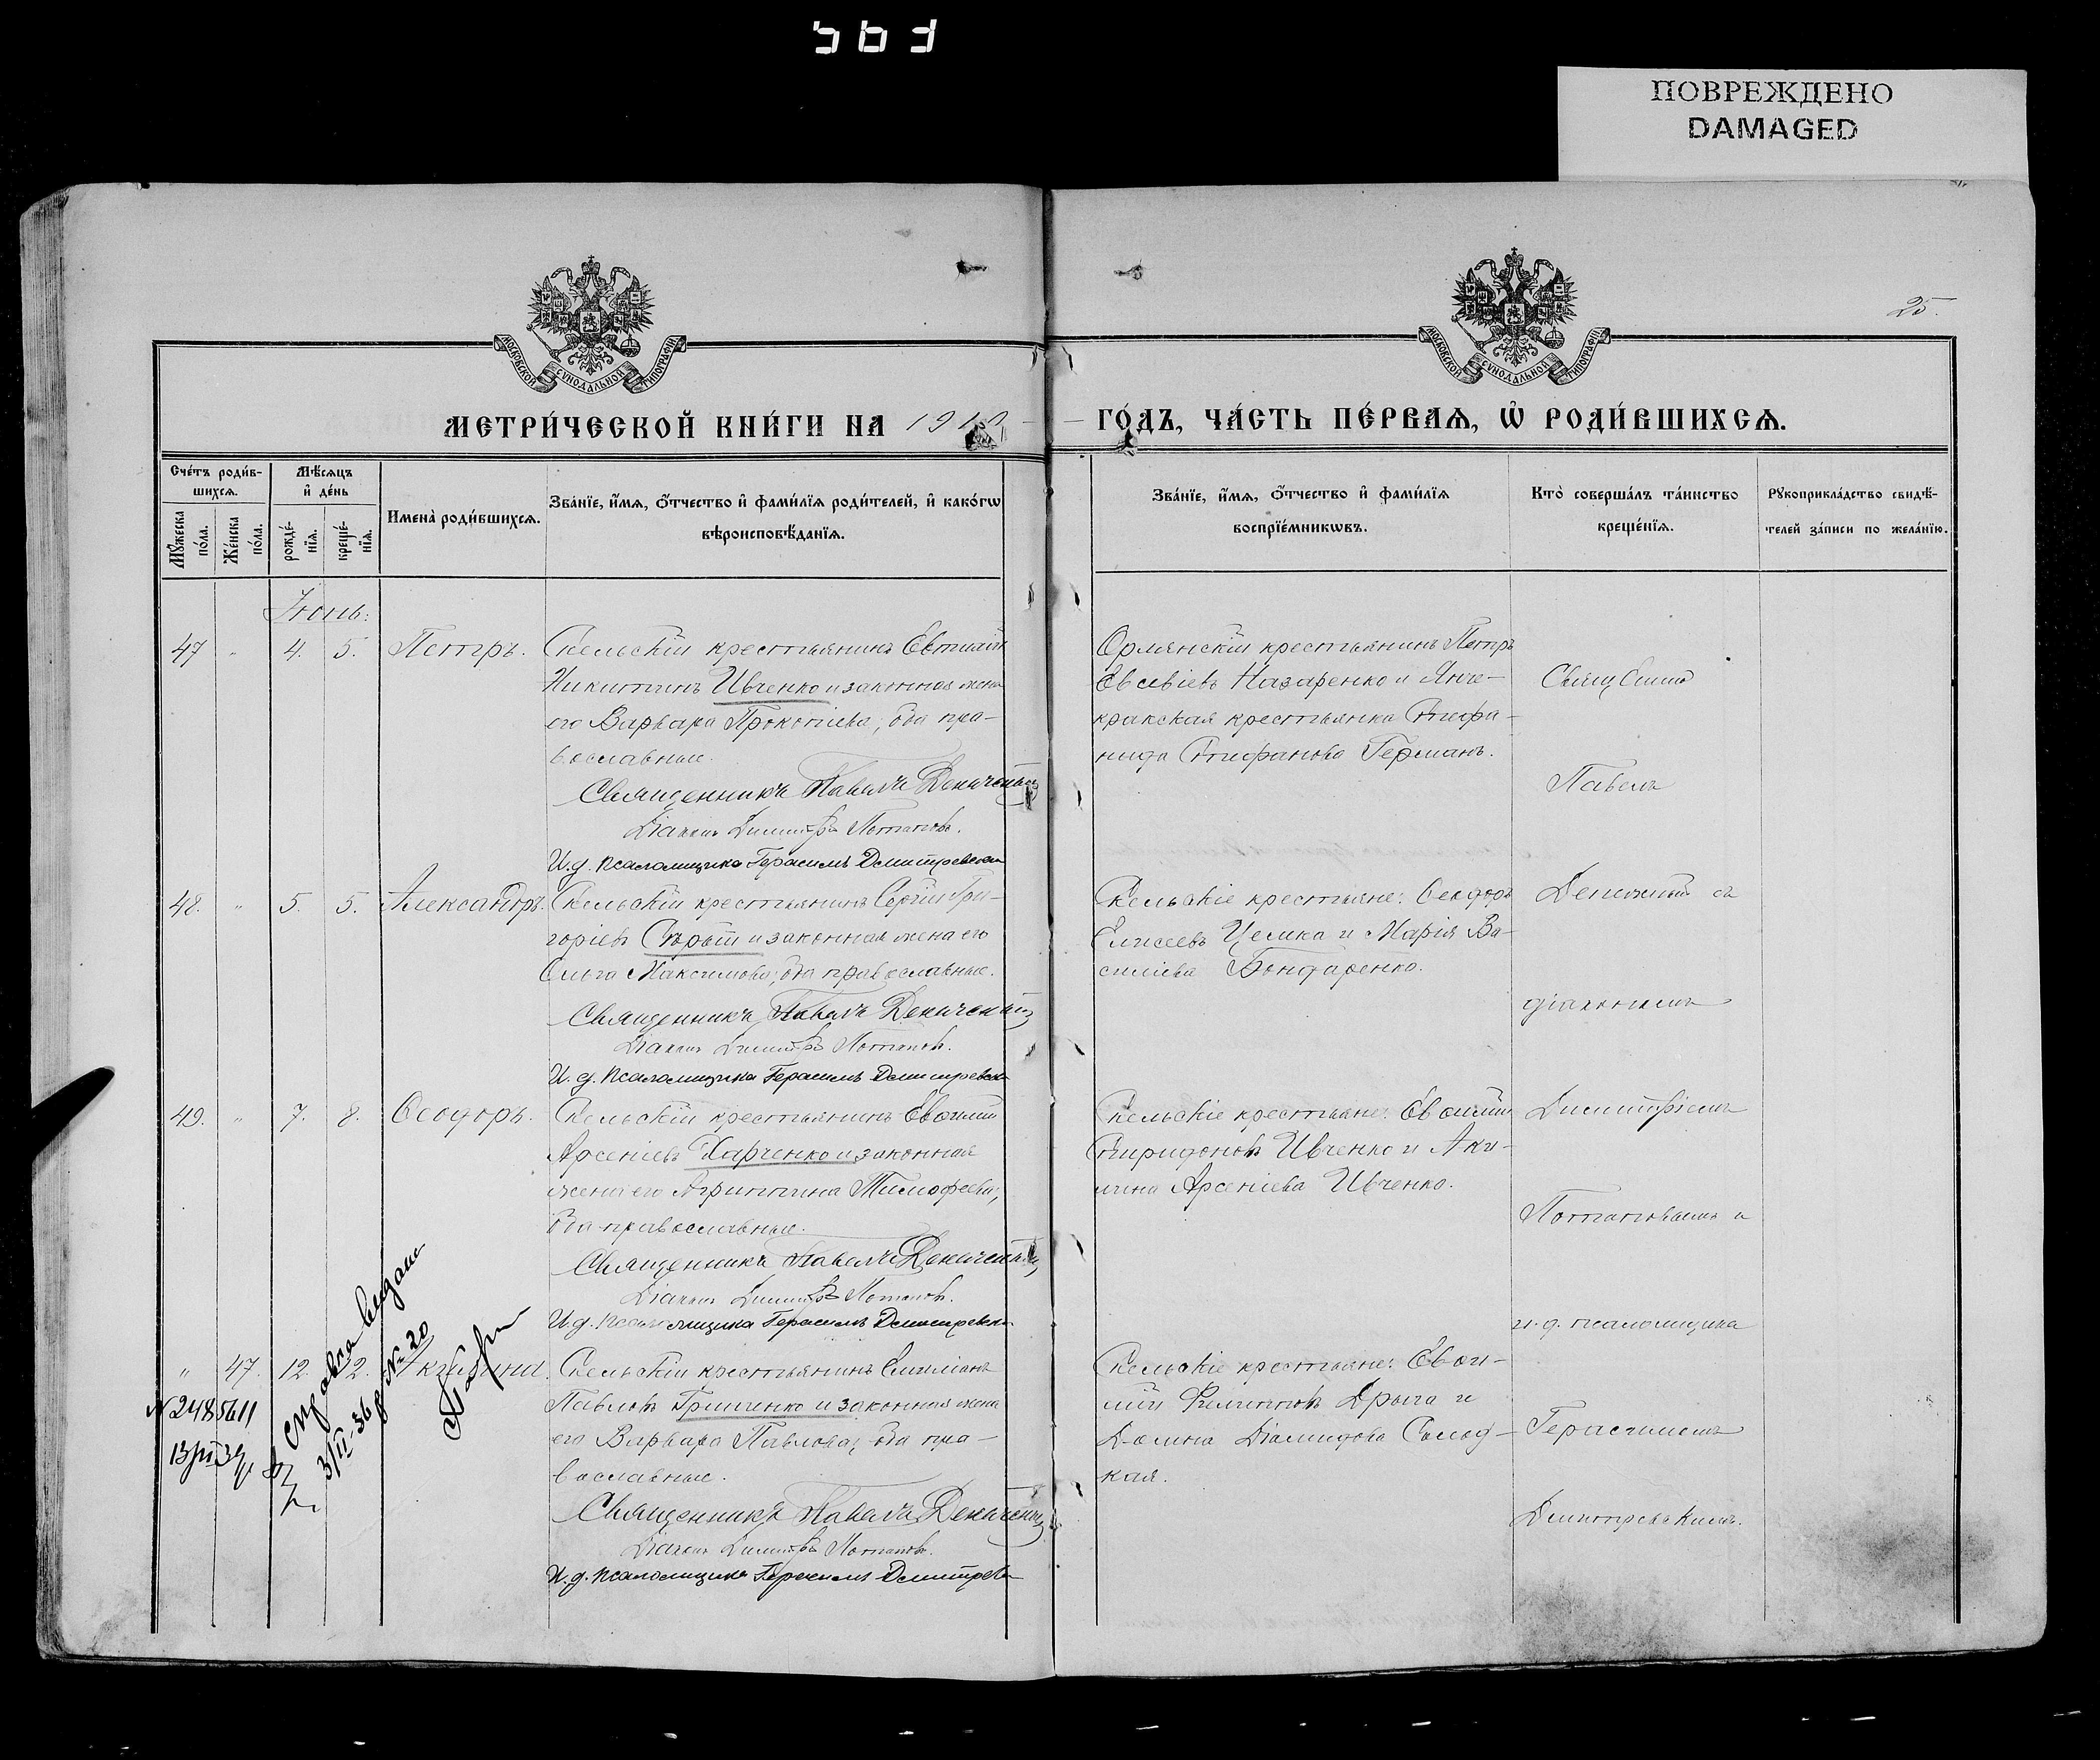 ПОВРЕЖДЕНО
DAMAGED
25.
МОСКОВСКОЙ СѴНОДАЛЬНОЙ ТИПОГРАФІИ
МОСКОВСКОЙ СѴНОДАЛЬНОЙ ТИПОГРАФІИ
МЕТРИ́ЧЕСКОЙ КНИ́ГИ НА 191
ГО́ДЪ, ЧА́СТЬ ПЕ́РВАѦ, Ѡ҆ РОДИ́ВШИХСѦ.
Сче́тъ роди́в-
шихсѧ.
Мꙋ́жеска по́ла.
Же́нска по́ла.
Мѣ́сѧцъ
и҆ де́нь
рожде́-
нїѧ.
креще́-
нїѧ.
Имена̀ роди́вшихсѧ.
Зва́нїе, и҆́мѧ, ѻ҆́тчество и҆ фами́лїѧ роди́телей, и҆ како́гѡ
вѣроисповѣ́данїѧ.
Зва́нїе, и҆́мѧ, ѻ҆́тчество и҆ фами́лїѧ
воспрїе́мникѡвъ.
Кто̀ соверша́лъ та́инство
креще́нїѧ.
Рꙋкоприкла́дство свидѣ́-
телей за́писи по жела́нїю.
Іюнь.
47 " 4. 5. Петръ.
Скельскій крестьянинъ Евтихій
Никитинъ Ивченко и законная жена
его Варвара Прокопіева, оба пра-
вославные.
Священникъ Павелъ
Діаконъ Димитрій Потаповъ.
И. д. псаломщика Герасимъ Дмитревскій
Орлянскій крестьянинъ Петръ
Евсевіевъ Назаренко и Янче-
кракская крестьянка Стефа-
нида Стефанова Германъ.
48. " 5. 5. Александръ.
Скельскій крестьянинъ Сергій Гри-
горіевъ Сѣрый и законная жена его
Ольга Максимова, оба православные.
Священникъ Павелъ
Діаконъ Димитрій Потаповъ.
И. д. псаломщика Герасимъ Дмитревскій
Скельскіе крестьяне: Ѳеодоръ
Елисеевъ Цемка и Марія Ва-
силіева Бондаренко.
49. " 7. 8. Ѳеодоръ.
Скельскій крестьянинъ Евѳимій
Арсеніевъ Харченко и законная
жена его Агриппина Тимоѳеева,
оба православные.
Священникъ Павелъ
Діаконъ Димитрій Потаповъ.
И. д. псаломщика Герасимъ Дмитревскій
Скельскіе крестьяне: Евѳимій
Спиридоновъ Ивченко и Аки-
лина Арсеніева Ивченко.
" 47. 12. 12. Акилина.
Скельскій крестьянинъ Емиліанъ
Павловъ Гринченко и законная жена
его Варвара Павлова, оба пра-
вославные.
Священникъ Павелъ
Діаконъ Димитрій Потаповъ.
И. д. псаломщика Герасимъ Дмитревскій
Скельскіе крестьяне: Евѳи-
мій Филипповъ Дрыга и
Домна Діомидова Солод-
кая.
Священникъ
Павелъ
съ
діакономъ
Димитріемъ
Потаповымъ и
и. д. псаломщика
Герасимомъ
Дмитревскимъ.
справка видана
3/II. 36 р № 20